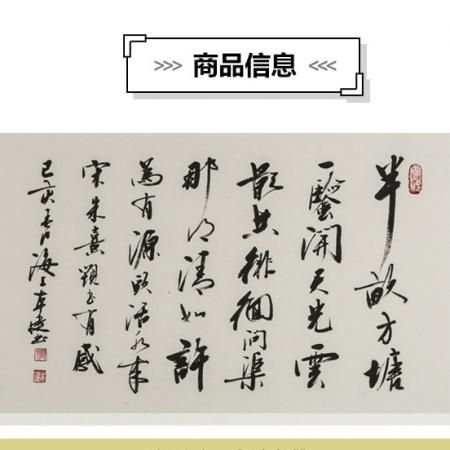 >>> 商品信息 <<<
半畝方塘
一鑒開天光雲
影共徘徊問渠
那得清如許
為有源頭活水來
宋朱熹觀書有感
己亥